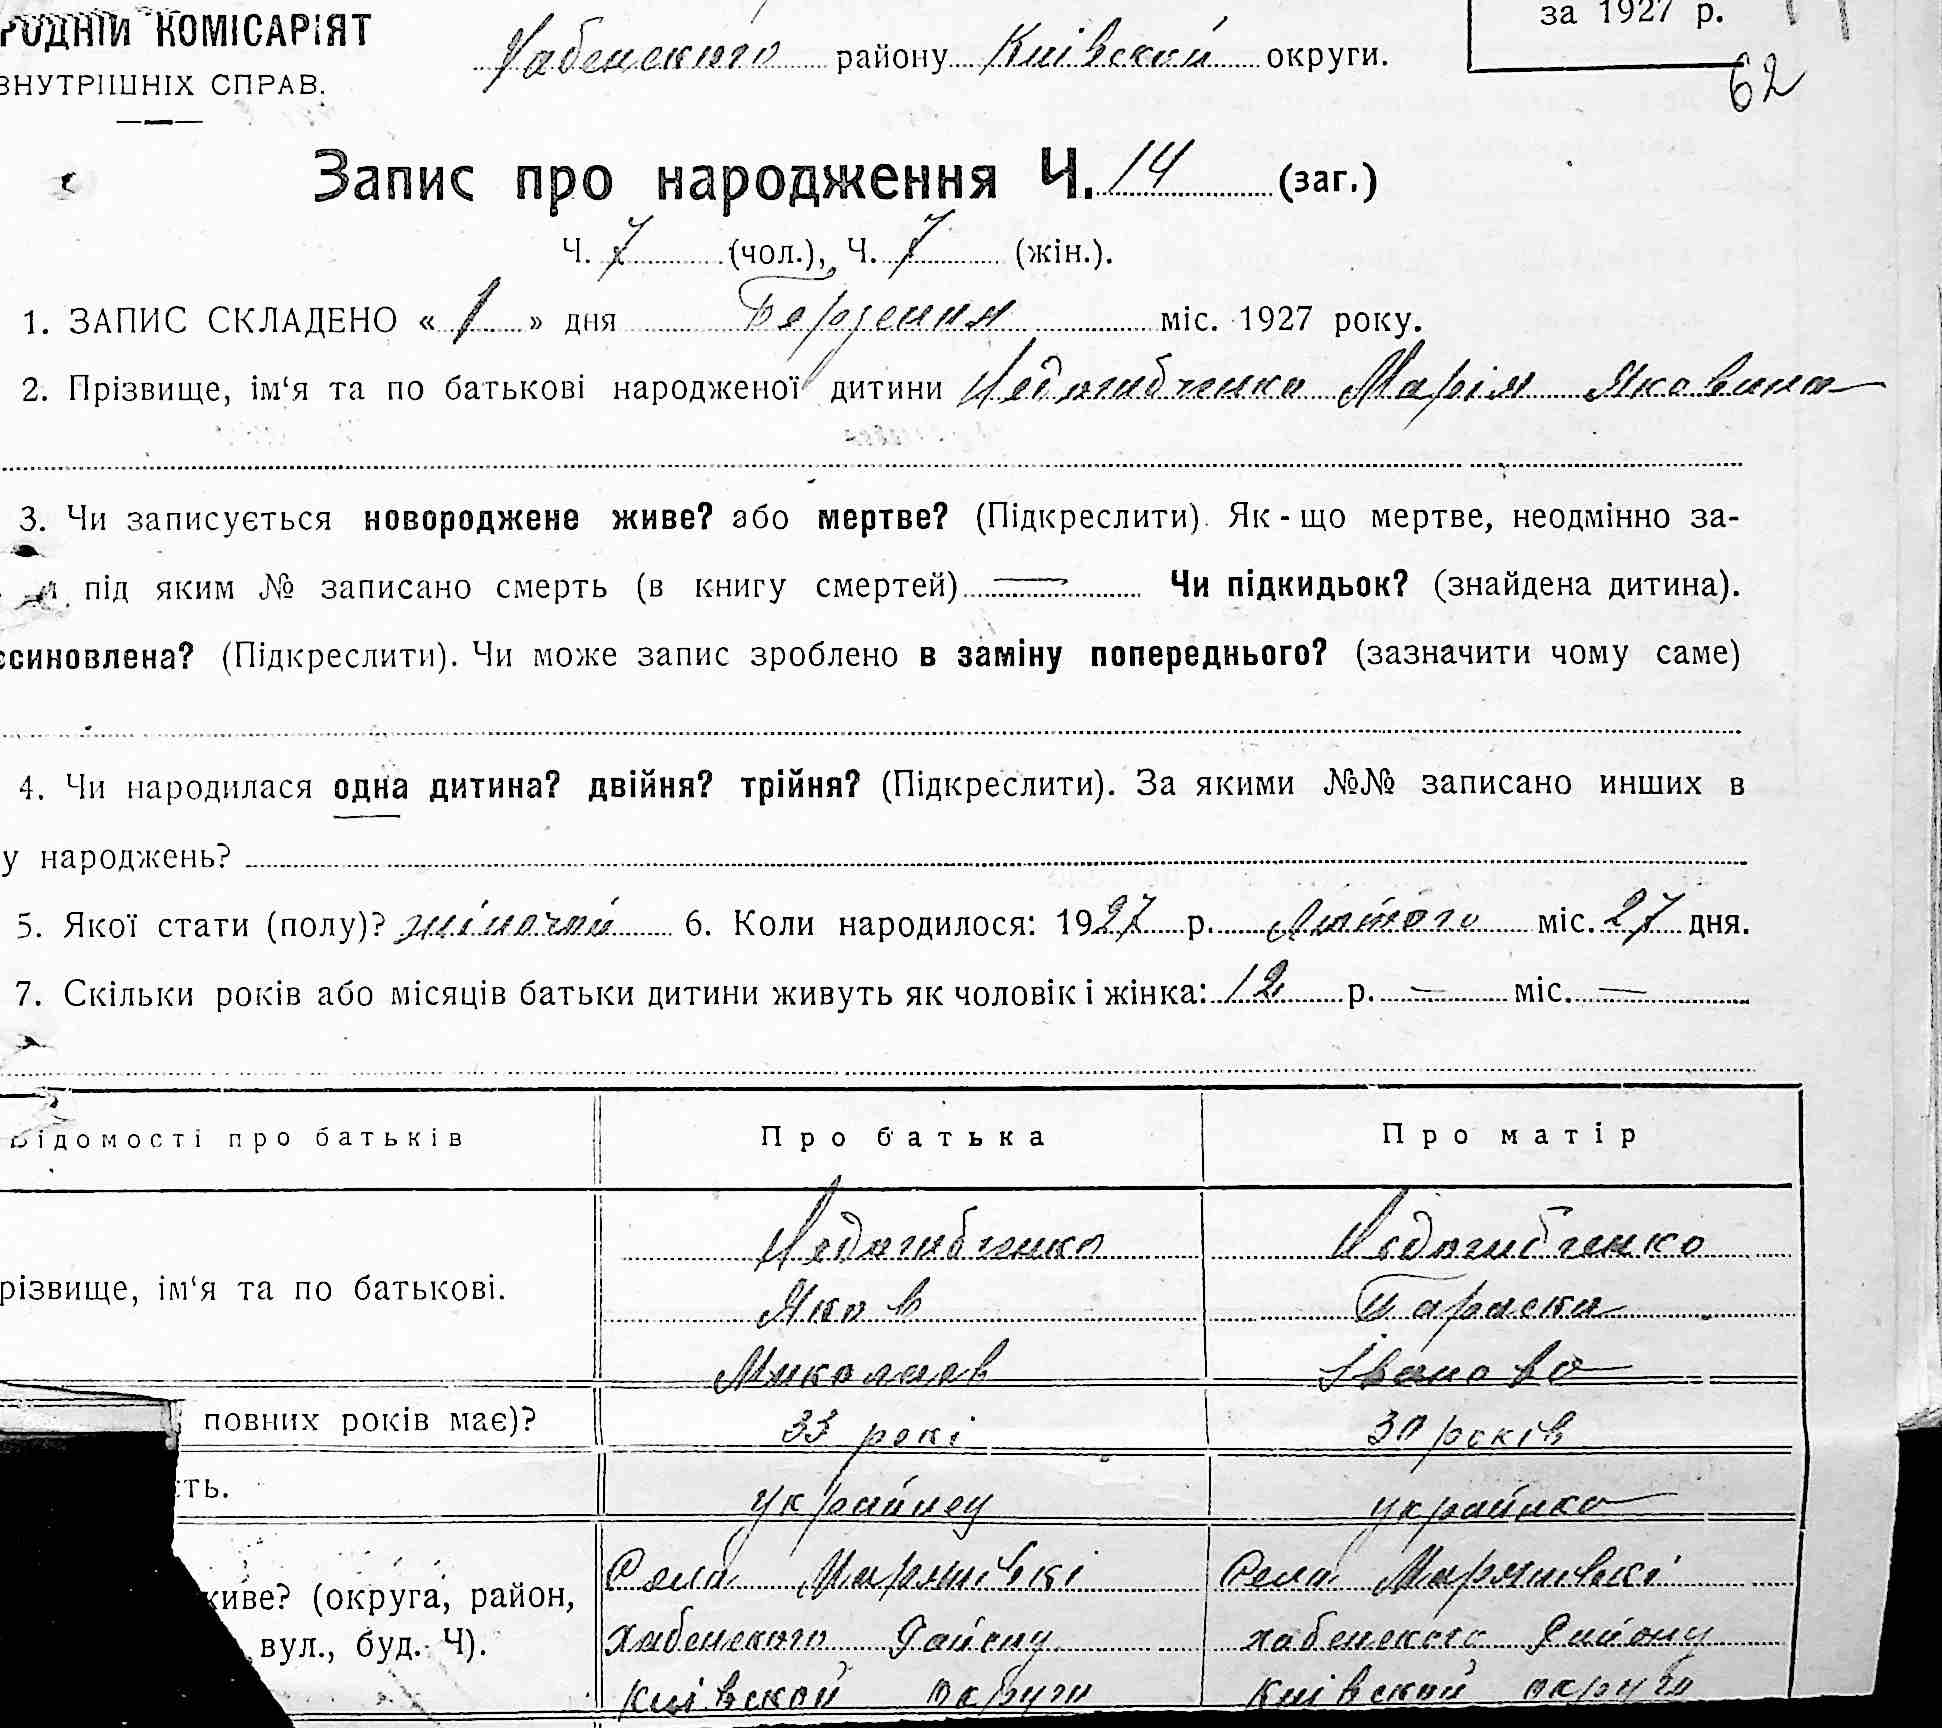 РОДНІЙ КОМІСАРІЯТ
ВНУТРІШНІХ СПРАВ.
Хабенского району Київской округи.
за 1927 р.
62
Запис про народження Ч. 14 (заг.)
Ч. 7 (чол.), Ч. 7 (жін.).
1. ЗАПИС СКЛАДЕНО « 1 » дня Березеня міс. 1927 року.
2. Прізвище, ім‘я та по батькові народженої дитини Недогибченко Марія Яковина
3. Чи записується новороджене живе? або мертве? (Підкреслити). Як-що мертве, неодмінно за-
під яким № записано смерть (в книгу смертей) Чи підкидьок? (знайдена дитина).
синовлена? (Підкреслити). Чи може запис зроблено в заміну попереднього? (зазначити чому саме)
4. Чи народилася одна дитина? двійня? трійня? (Підкреслити). За якими №№ записано инших в
у народжень?
5. Якої стати (полу)? жіночой 6. Коли народилося: 1927 р. Лютого міс. 27 дня.
7. Скільки років або місяців батьки дитини живуть як чоловік і жінка: 12 р. — міс. —
Відомості про батьків Про батька Про матір
різвище, ім‘я та по батькові.
Недогибченко Недогибченко
Яков Параска
Миколаев Іванова
повних років має)? 33 рокі 30 років
сть. українец українка
живе? (округа, район,
вул., буд. Ч).
Села Марянівкі Села Марянівкі
Хабенского Району Хабенского Району
Київской округи Київской округи